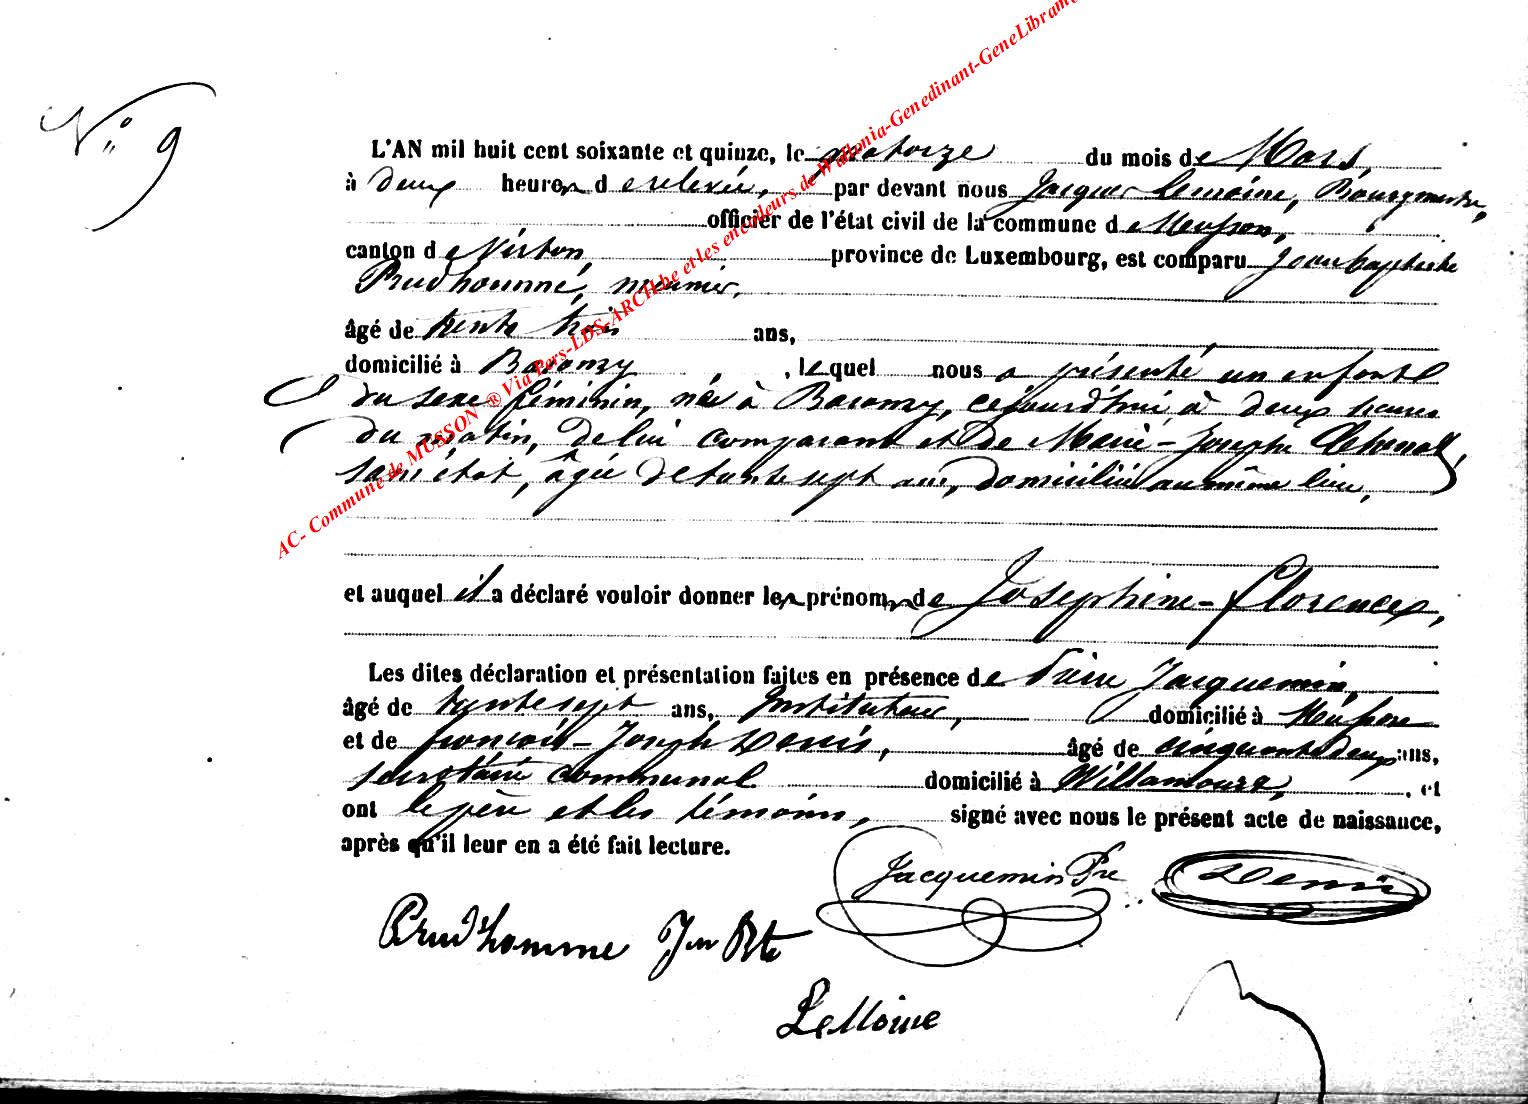 N° 9
AC- Commune de MUSSON ® Via Pers-LDS-ARCH.be et les encodeurs de Wallonia-Genedinant-GeneLibramo
L'AN mil huit cent soixante et quinze, le quatorze du mois de Mars,
à deux heures de relevée, par devant nous Jacques Lemoine, Bourgmestre,
officier de l'état civil de la commune de Musson,
canton de Virton, province de Luxembourg, est comparu Jean baptiste
Prudhomme, meunier,
âgé de trente trois ans,
domicilié à Baranzy, lequel nous a présenté un enfant
du sexe féminin, née à Baranzy, cejourd'hui à deux heures
du matin, de lui comparant et de Marie-Josephe
sans état, âgée de trente sept ans, domiciliée au même lieu,
et auquel il a déclaré vouloir donner les prénoms de Josephine-Florence,
Les dites déclaration et présentation faites en présence de Pierre Jacquemin,
âgé de trente sept ans, Instituteur, domicilié à Musson
et de françois-Joseph Denis, âgé de cinquante deux ans,
secrétaire communal domicilié à Willancourt, et
ont le père et les témoins, signé avec nous le présent acte de naissance,
après qu'il leur en a été fait lecture.
Jacquemin Pre Denis
Prudhomme Jn Bte
LeMoine